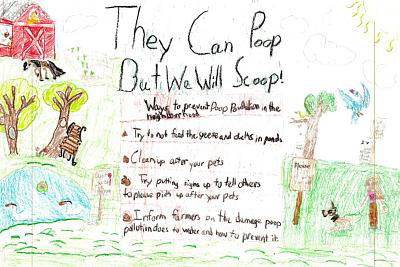 They Can Poop
But We Will Scoop!
Ways to prevent Poop Pollution in the
neighborhood
Try to not feed the geese and ducks in ponds
Clean up after your pets
Try putting signs up to tell others
to please pick up after your pets
Inform farmers on the damage poop
pollution does to water and how to prevent it
Please